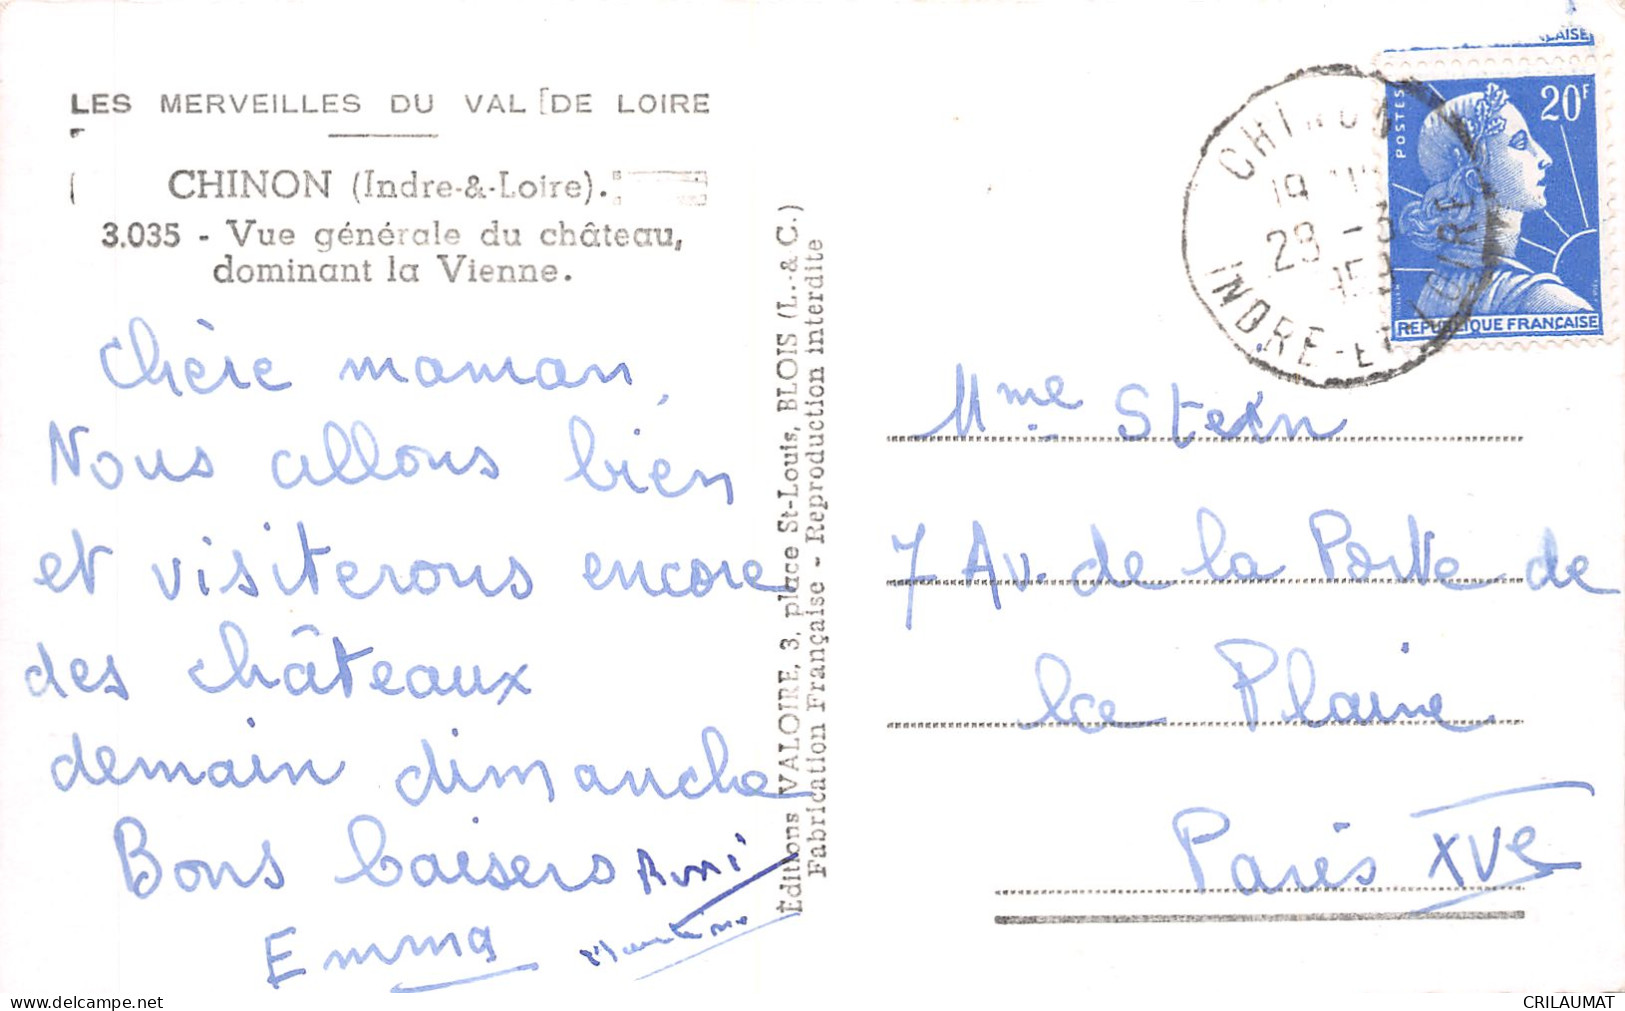 LES MERVEILLES DU VAL DE LOIRE
CHINON (Indre-&-Loire).
3.035 - Vue générale du château,
dominant la Vienne.
Chère maman,
Nous allons bien
et visiterons encore
des châteaux
demain dimanche
Bons baisers
Emma
Martine
Éditions VALOIRE, 3, place St-Louis, BLOIS (L.-&-C.)
Fabrication Française - Reproduction interdite
CHINON
INDRE-ET-LOIRE
ÇAISE
POSTES
20F
REPUBLIQUE FRANÇAISE
Mme Stern
7 Av. de la Porte de
la Plaine
Paris XVe
delcampe.net
CRILAUMAT